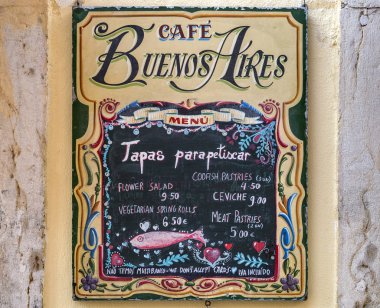 CAFÉ
BUENOS AIRES
MENÚ
Tapas para petiscar
CODFISH PASTRIES
4.50
FLOWER SALAD
9.50
CEVICHE 9.00
VEGETARIAN SPRING ROLLS
6.50€
MEAT PASTRIES
5.00€
NÃO TEMOS MULTIBANCO - WE DON'T ACCEPT CARDS - IVA INCLUÍDO